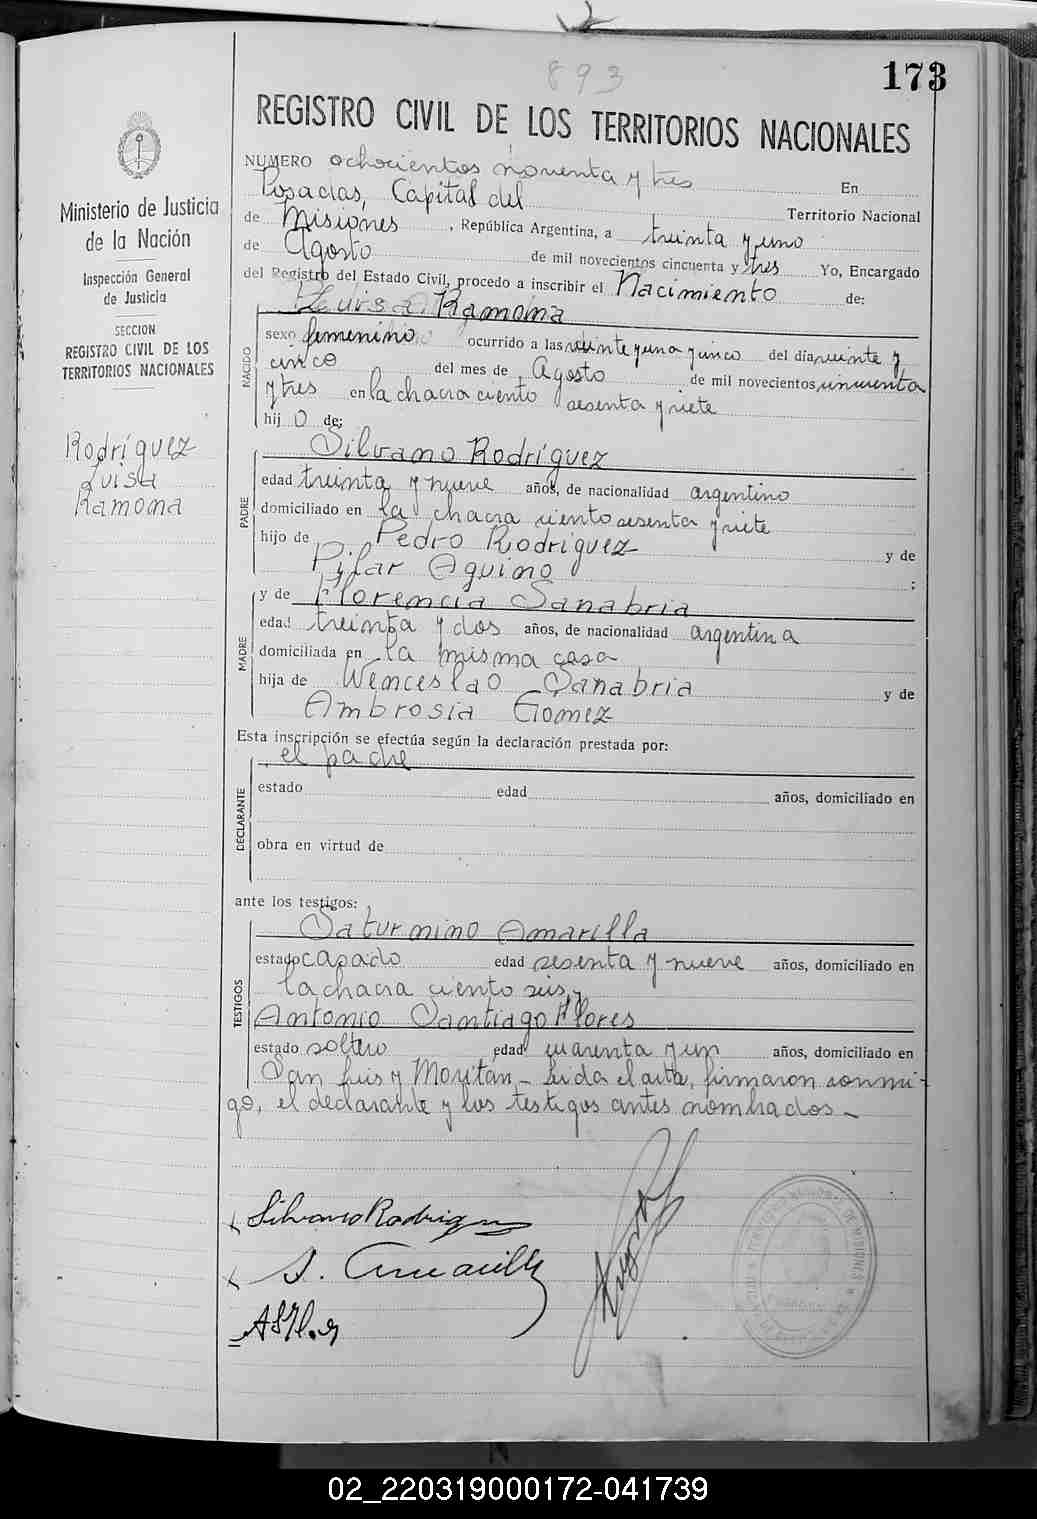 893
173
REGISTRO CIVIL DE LOS TERRITORIOS NACIONALES
NUMERO ochocientos noventa y tres En
Posadas, Capital del Territorio Nacional
de Misiones, República Argentina, a treinta y uno
de Agosto de mil novecientos cincuenta y tres Yo, Encargado
del Registro del Estado Civil, procedo a inscribir el Nacimiento de:
Luisa Ramona
NACIDO
sexo femenino ocurrido a las veinte y una y cinco del día veinte y
cinco del mes de Agosto de mil novecientos cincuenta
y tres en la chacra ciento sesenta y siete
hij o de:
Silvano Rodríguez
PADRE
edad treinta y nueve años, de nacionalidad argentino
domiciliado en la chacra ciento sesenta y siete
hijo de Pedro Rodriguez y de
Pilar Aquino ;
y de Florencia Sanabria
MADRE
edad treinta y dos años, de nacionalidad argentina
domiciliada en la misma casa
hija de Wenceslao Sanabria y de
Ambrosia Gomez
Esta inscripción se efectúa según la declaración prestada por:
el padre
DECLARANTE
estado edad años, domiciliado en
obra en virtud de
ante los testigos:
Saturnino Amarilla
TESTIGOS
estado casado edad sesenta y nueve años, domiciliado en
la chacra ciento seis, y
Antonio Santiago Flores
estado soltero edad cuarenta y un años, domiciliado en
San Luis y Moritán - Leida el acta, firmaron conmi-
go, el declarante y los testigos antes nombrados -
Silvano Rodriguez
S. Amarilla
Ministerio de Justicia
de la Nación
Inspección General
de Justicia
SECCION
REGISTRO CIVIL DE LOS
TERRITORIOS NACIONALES
Rodríguez
Luisa
Ramona
02_220319000172-041739